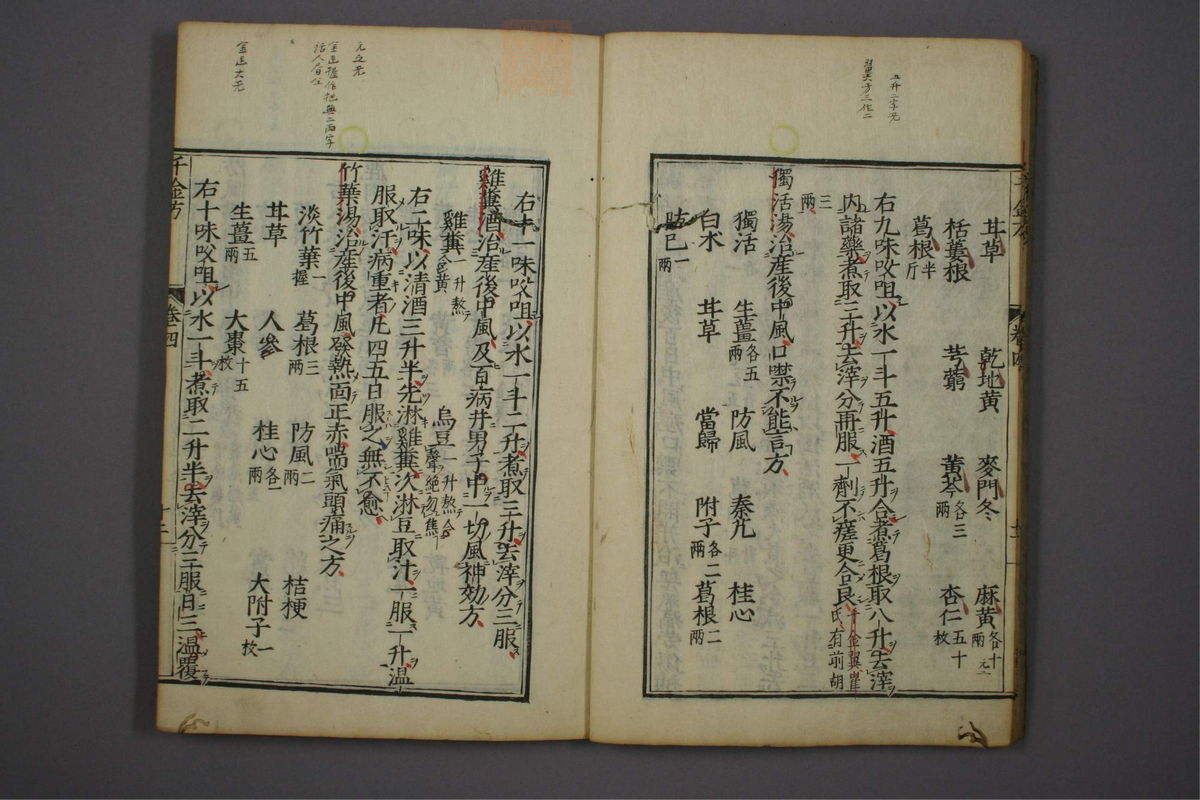 五升二字元
甘草 乾地黄 麥門冬 麻黄各十兩
栝蔞根 芎藭 黄芩各三兩 杏仁五十枚
葛根半斤
右九味㕮咀以水一斗五升酒五升合煮葛根取八升去滓
内諸藥煮取三升去滓分再服一劑不瘥更合良千金翼崔氏有前胡
三兩
獨活湯治産後中風口噤不能言方
獨活 生薑各五兩 防風 秦艽 桂心
白朮 甘草 當歸 附子各二兩 葛根二兩
防己一兩
右十一味㕮咀以水一斗二升煮取三升去滓分三服
雞糞酒治産後中風及百病并男子中一切風神効方
雞糞一升熬令黄 烏豆一升熬令聲絶勿焦
右二味以清酒三升半先淋雞糞次淋豆取汁一服一升温
服取汗病重者凡四五日服之無不愈
竹葉湯治産後中風發熱面正赤喘氣頭痛之方
淡竹葉握 葛根三兩 防風二兩 桔梗
甘草 人參 桂心各一兩 大附子一枚
生薑五兩 大棗十五枚
右十味㕮咀以水一斗煮取二升半去滓分三服日三温覆
千金方 卷四